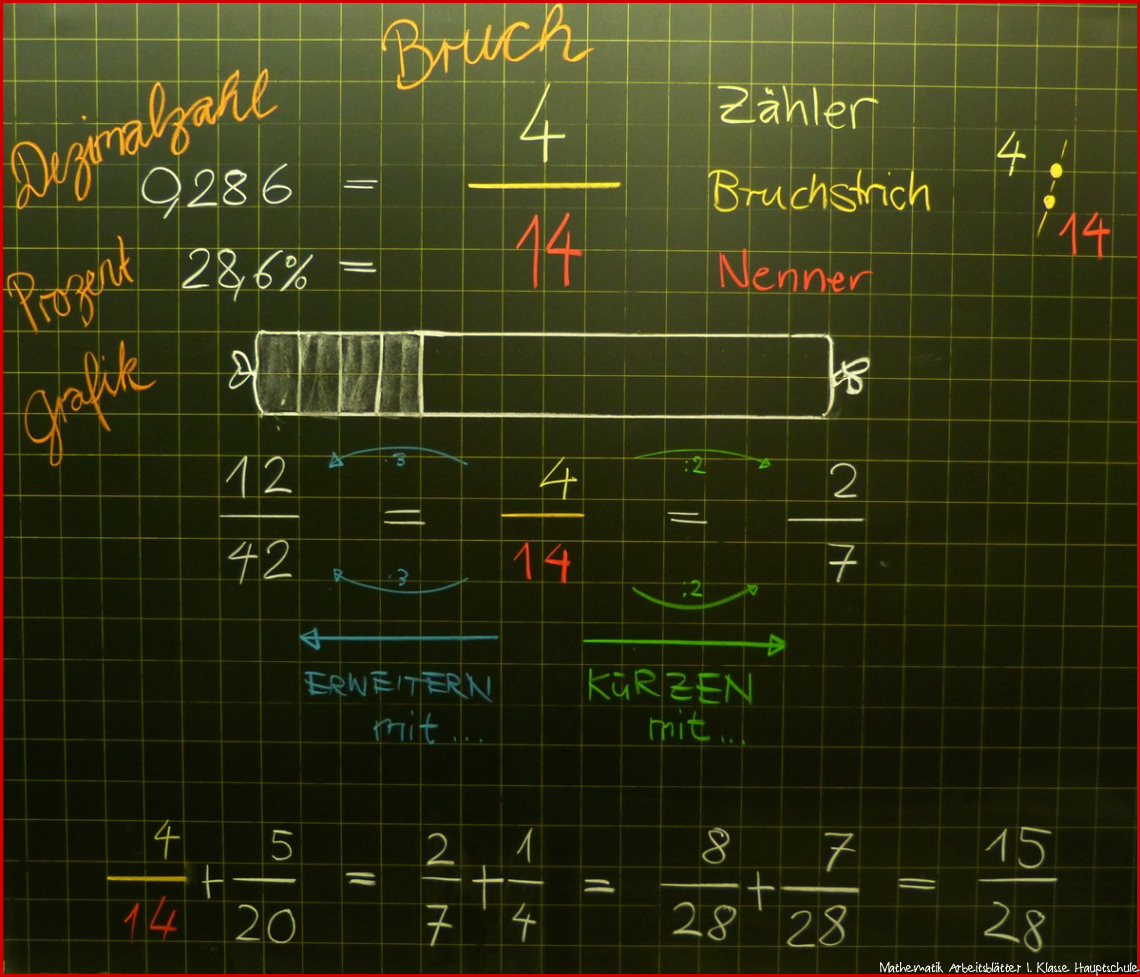 Bruch
Dezimalzahl
0,286 = 4/14
Zähler
Bruchstrich
Nenner
4 14
Prozent 28,6% =
Grafik
12/42 = 4/14 = 2/7
·3 :2
·3 :2
ERWEITERN mit...
KÜRZEN mit...
4/14 + 5/20 = 2/7 + 1/4 = 8/28 + 7/28 = 15/28
Mathematik Arbeitsblätter 1. Klasse Hauptschule